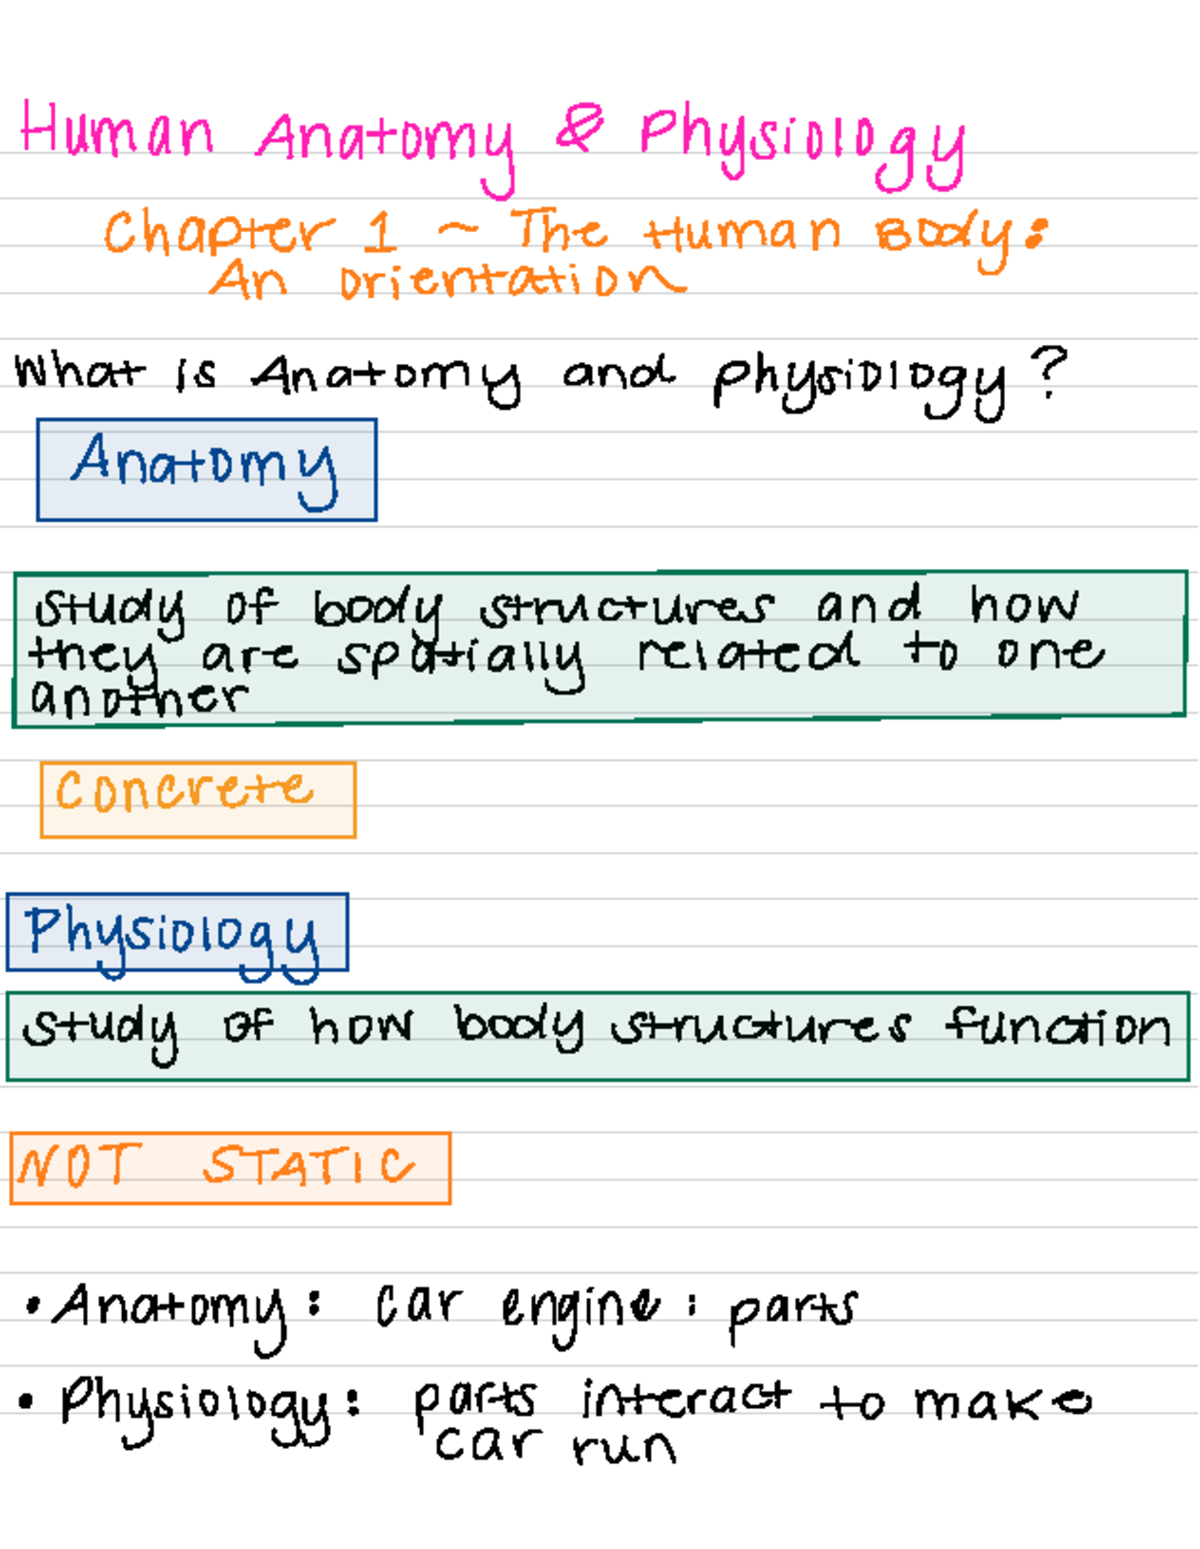 Human Anatomy & Physiology
Chapter 1 ~ The Human Body:
An Orientation
What is Anatomy and physiology?
Anatomy
study of body structures and how
they are spatially related to one
another
Concrete
Physiology
study of how body structures function
NOT STATIC
• Anatomy: car engine: parts
• Physiology: parts interact to make
car run